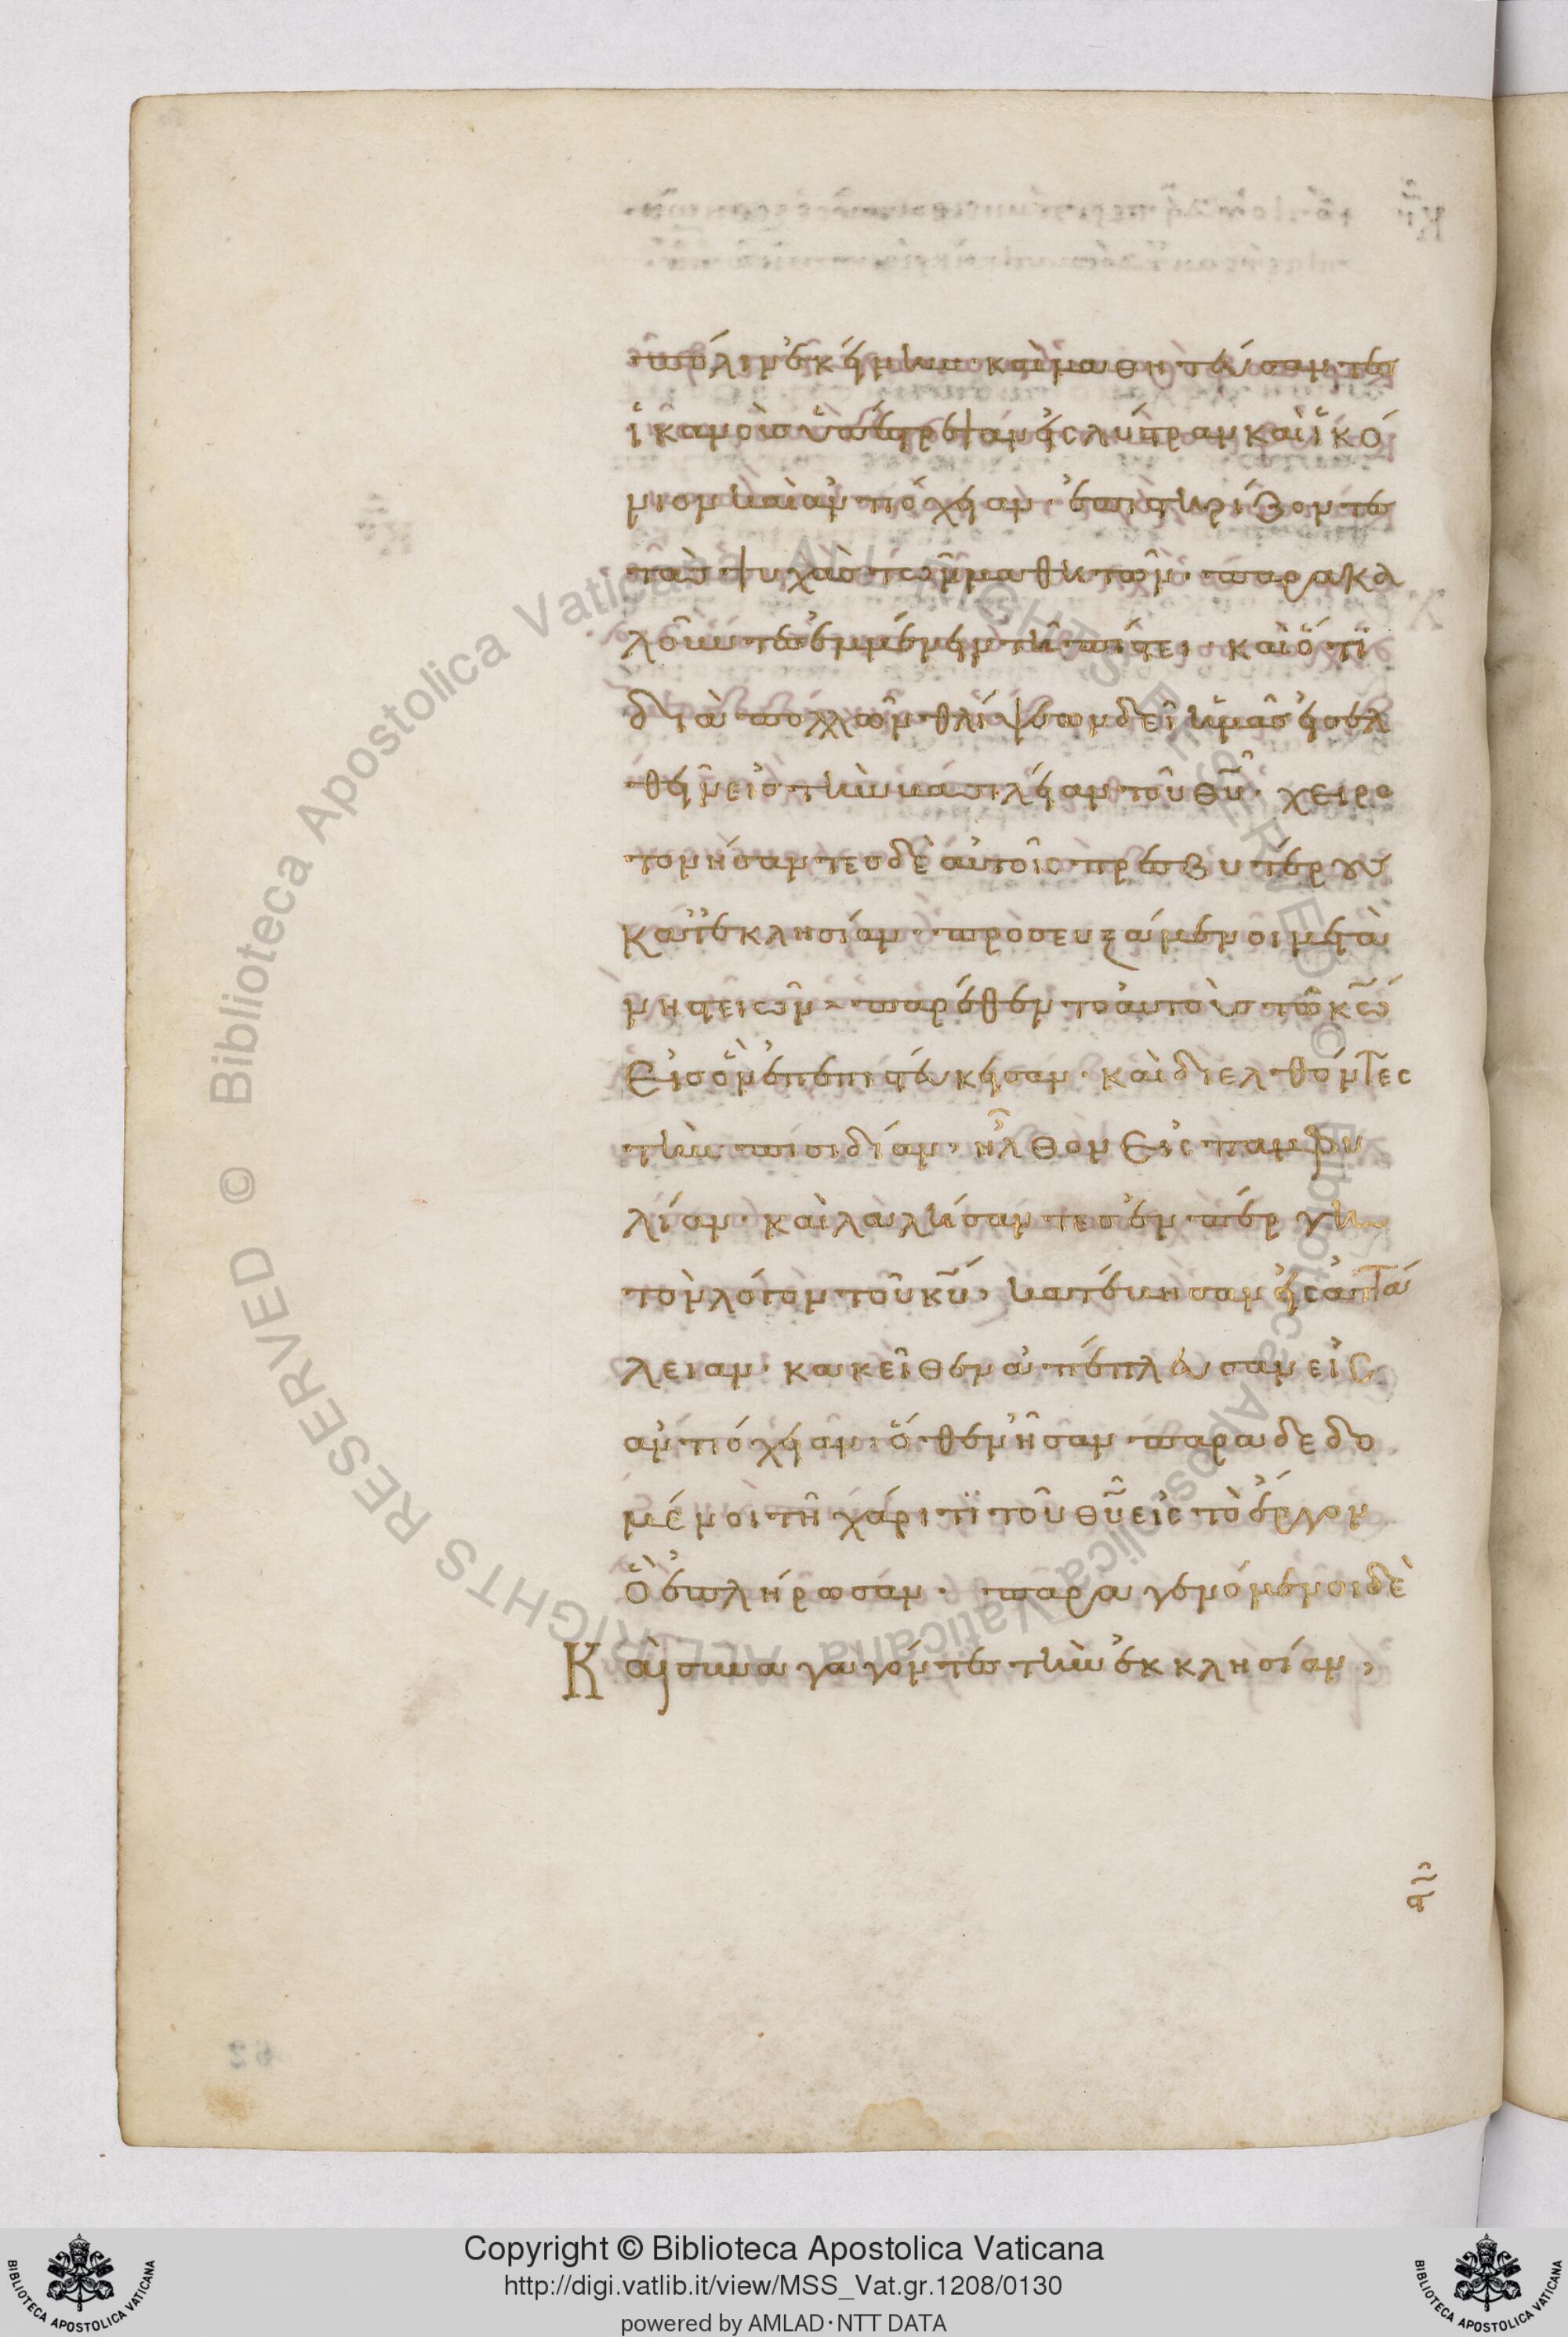 πόλιν ἐκείνην· καὶ μαθητεύσαντες
ἱκανοὺς ὑπέστρεψαν εἰς λύστραν καὶ ἰκό
νιον καὶ ἀντιόχειαν· ἐπιστηρίζοντες
τὰς ψυχὰς τῶν μαθητῶν· παρακα
λοῦντες ἐμμένειν τῆ πίστει· καὶ ὅτι
διὰ πολλῶν θλίψεων δεῖ ἡμᾶς εἰσελ
θεῖν εἰς τὴν βασιλείαν τοῦ θῦ· χειρο
τονήσαντες δὲ αὐτοῖς πρεσβυτέρους
κατ' ἐκκλησίαν· προσευξάμενοι μετὰ
νηστειῶν· παρέθεντο αὐτοὺς τῶ κω
εἰς ὃν ἐπεπιστεύκεισαν· καὶ διελθόντες
τὴν πισιδίαν· ἦλθον εἰς παμφυ
λίαν· καὶ λαλήσαντες ἐν πέργη
τὸν λόγον τοῦ κυ, κατέβησαν εἰς ἀττά
λειαν· κακεῖθεν ἀπέπλευσαν εἰς
ἀντιόχειαν· ὅθεν ἦσαν παραδεδο
μένοι τῆ χάριτι τοῦ θυ εἰς τὸ ἔργον
ὃ ἐπλήρωσαν· παραγενόμενοι δὲ
Καὶ συναγαγόντες τὴν ἐκκλησίαν,
Copyright © Biblioteca Apostolica Vaticana
http://digi.vatlib.it/view/MSS_Vat.gr.1208/0130
powered by AMLAD·NTT DATA